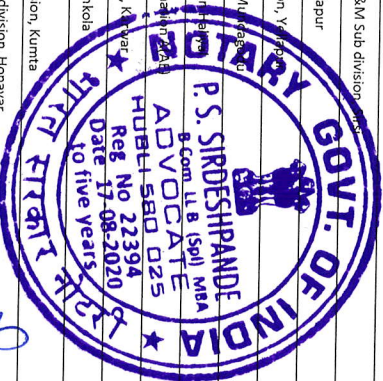 &M Sub division, Sirsi
apur
n, Yellapur
Mundagod
Karwar
nkola
ion, Kumta
division, Honavar
NOTARY GOVT. OF INDIA
P. S. SIRDESHPANDE
B.Com LL B (Spl) MBA
ADVOCATE
HUBLI 580 025
Reg No 22394
Date 17-08-2020
to five years
भारत सरकार